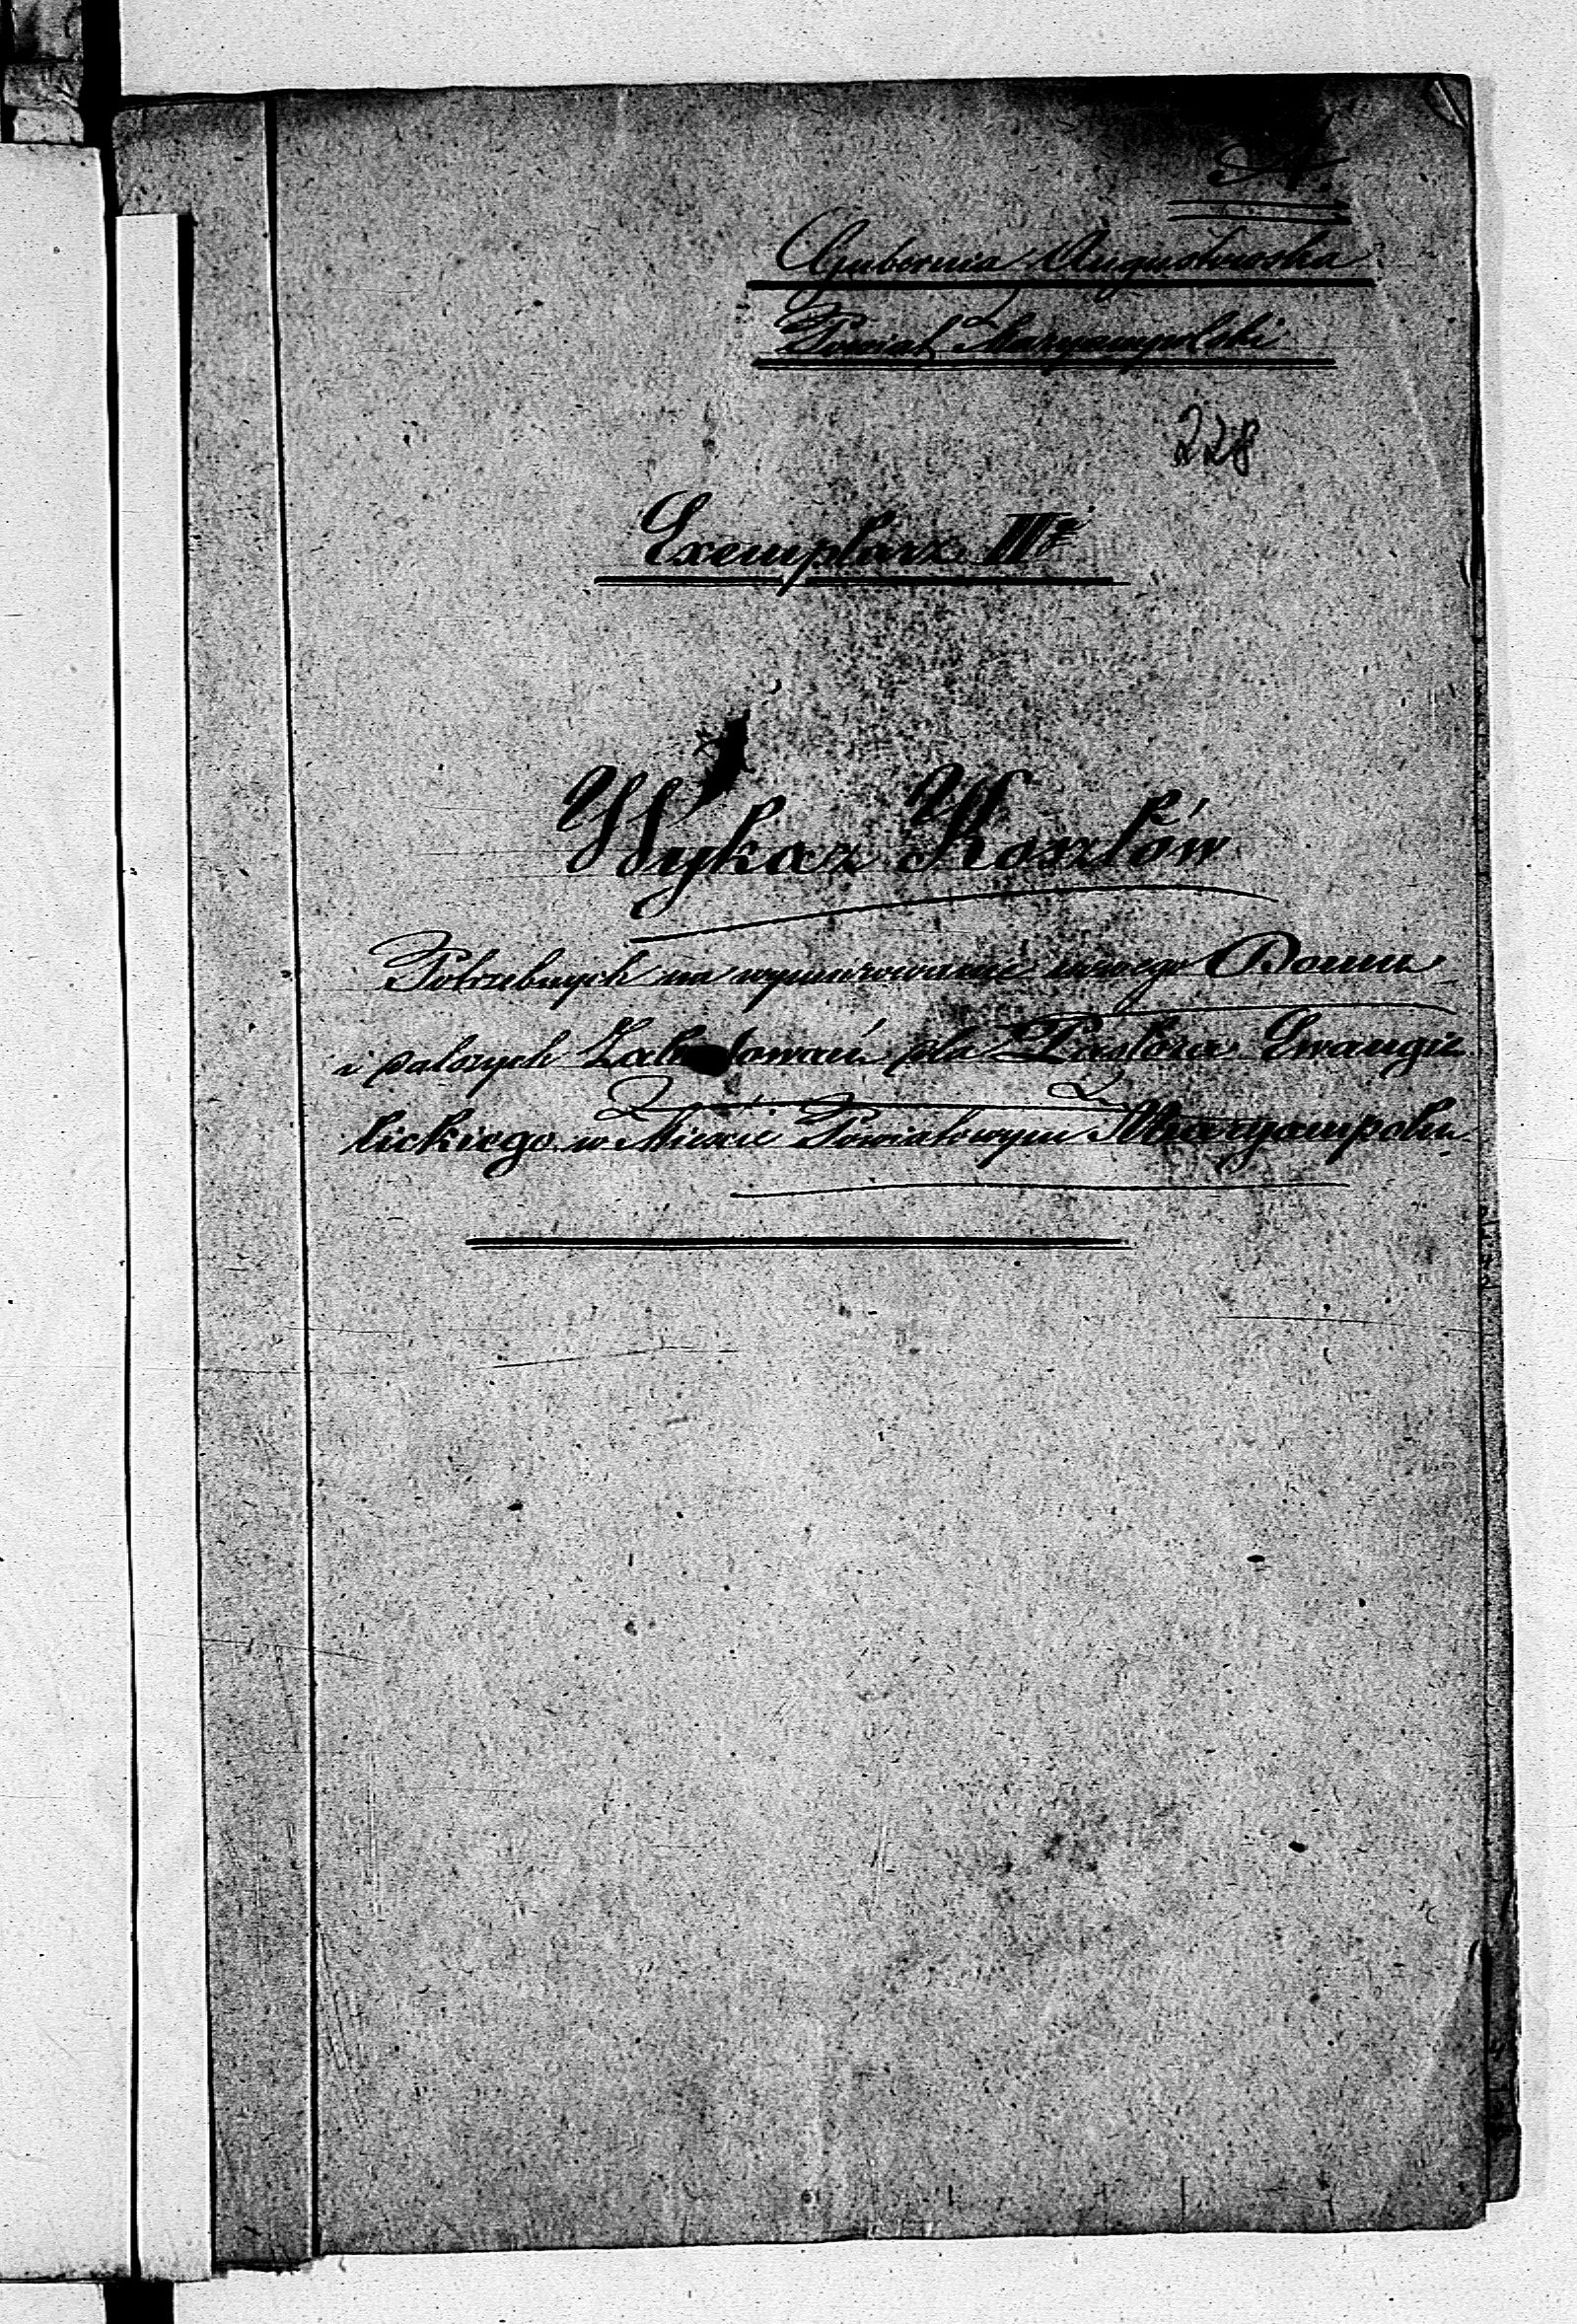 A.
Gubernia Augustowska
Powiat Maryampolski
228
Exemplarz IIIi
Wykaz Kosztów
Potrzebnych na wymurowanie nowego Domu
i dalszych Zabudowań dla Pastora Ewangie
lickiego w Mieście Powiatowym Maryampolu